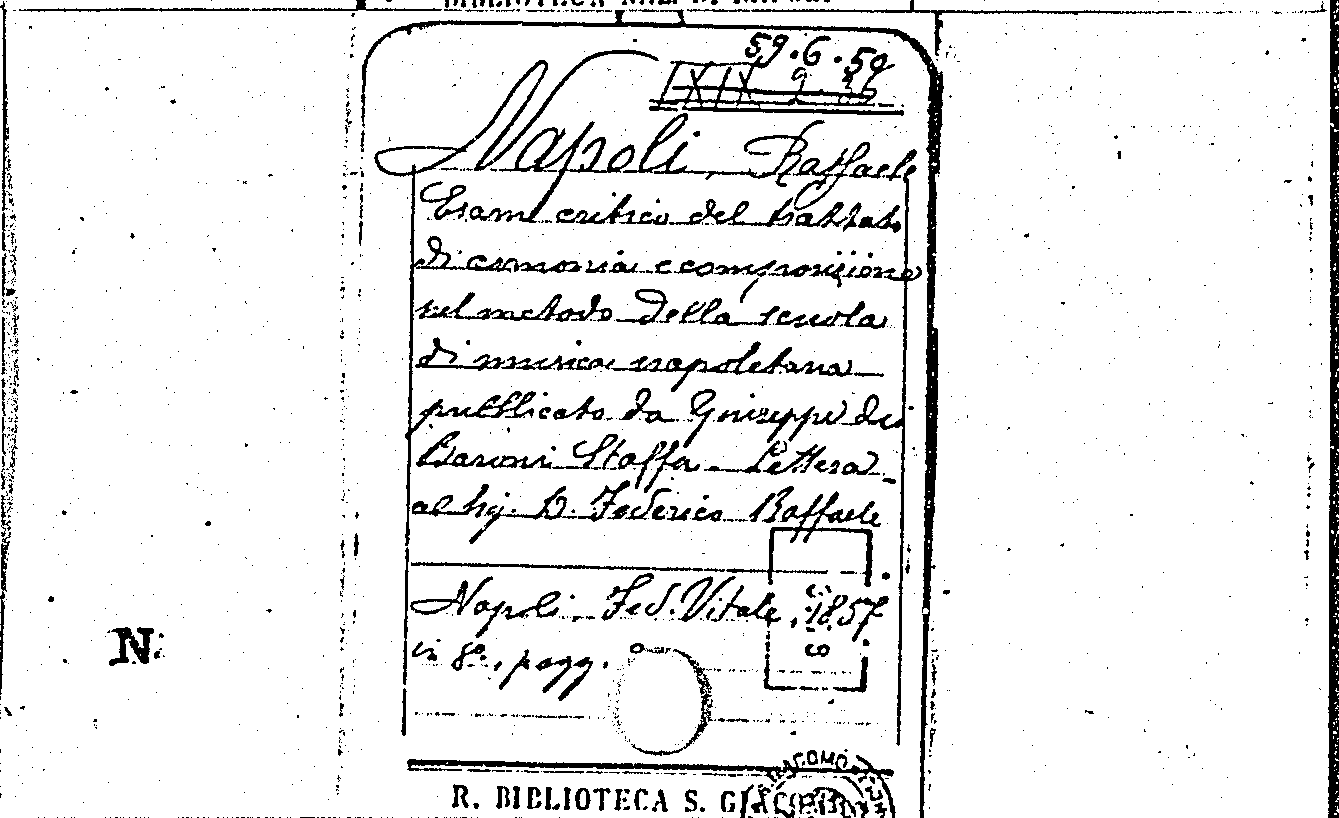 59.6.59
LXIX 2 35
Napoli, Raffaele
Esame critico del trattato
di armonia e composizione
sul metodo della scuola
di musica napoletana
pubblicato da Giuseppe dei
Baroni Staffa. Lettera
al Sig. D. Federico Raffaele
Napoli, Fed. Vitale, 1857
in 8°, pagg. 8
N.
R. BIBLIOTECA S. GIACOMO